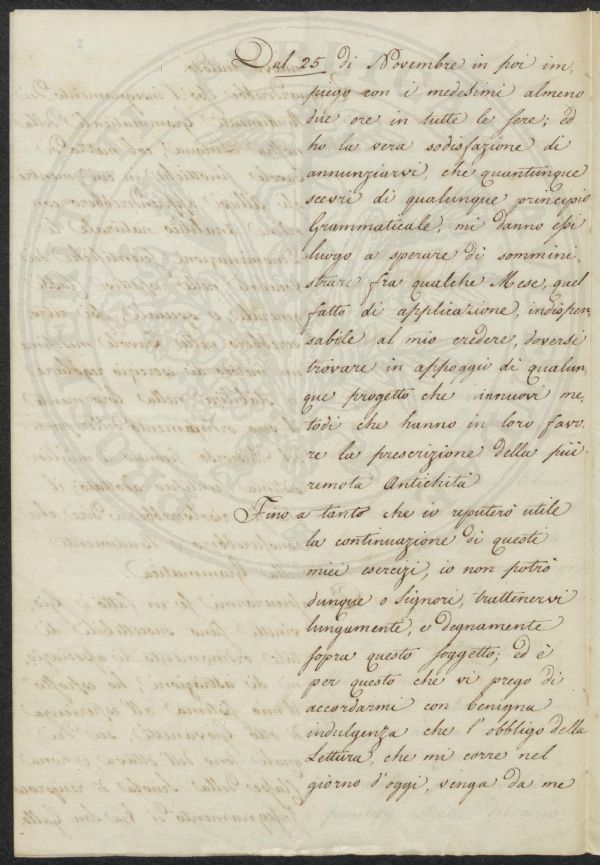 Dal 25 di Novembre in poi im,
piego con i medesimi almeno
due ore in tutte le sere; ed
ho la vera sodisfazione di
annunziarvi, che quantunque
scevri di qualunque principio
Grammaticale, mi danno essi
luogo a sperare di sommini,
strare fra qualche Mese, quel
fatto di applicazione, indispen,
sabile al mio credere, doversi
trovare in appoggio di qualun,
que progetto che innuovi me,
todi che hanno in loro favo,
re la prescrizione della più
remota Antichità
Fino a tanto che io reputerò utile
la continuazione di questi
miei esercizi, io non potrò
dunque o Signori, trattenervi
lungamente, e degnamente
sopra questo soggetto; ed è
per questo che vi prego di
accordarmi con benigna
indulgenza che l'obbligo della
Lettura, che mi corre nel
giorno d'oggi, venga da me